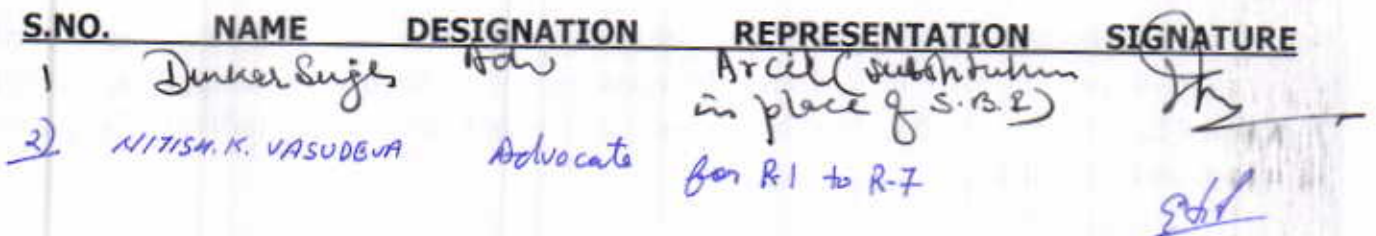 S.NO. NAME DESIGNATION REPRESENTATION SIGNATURE
1 Dinker Singh Adv Arcil (substitution
in place of S.B.I)
2) NITISH. K. VASUDEVA Advocate for R-1 to R-7